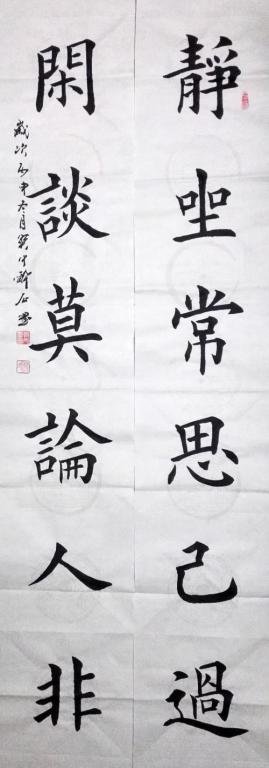 靜坐常思己過
閑談莫論人非
歲次丙申冬月